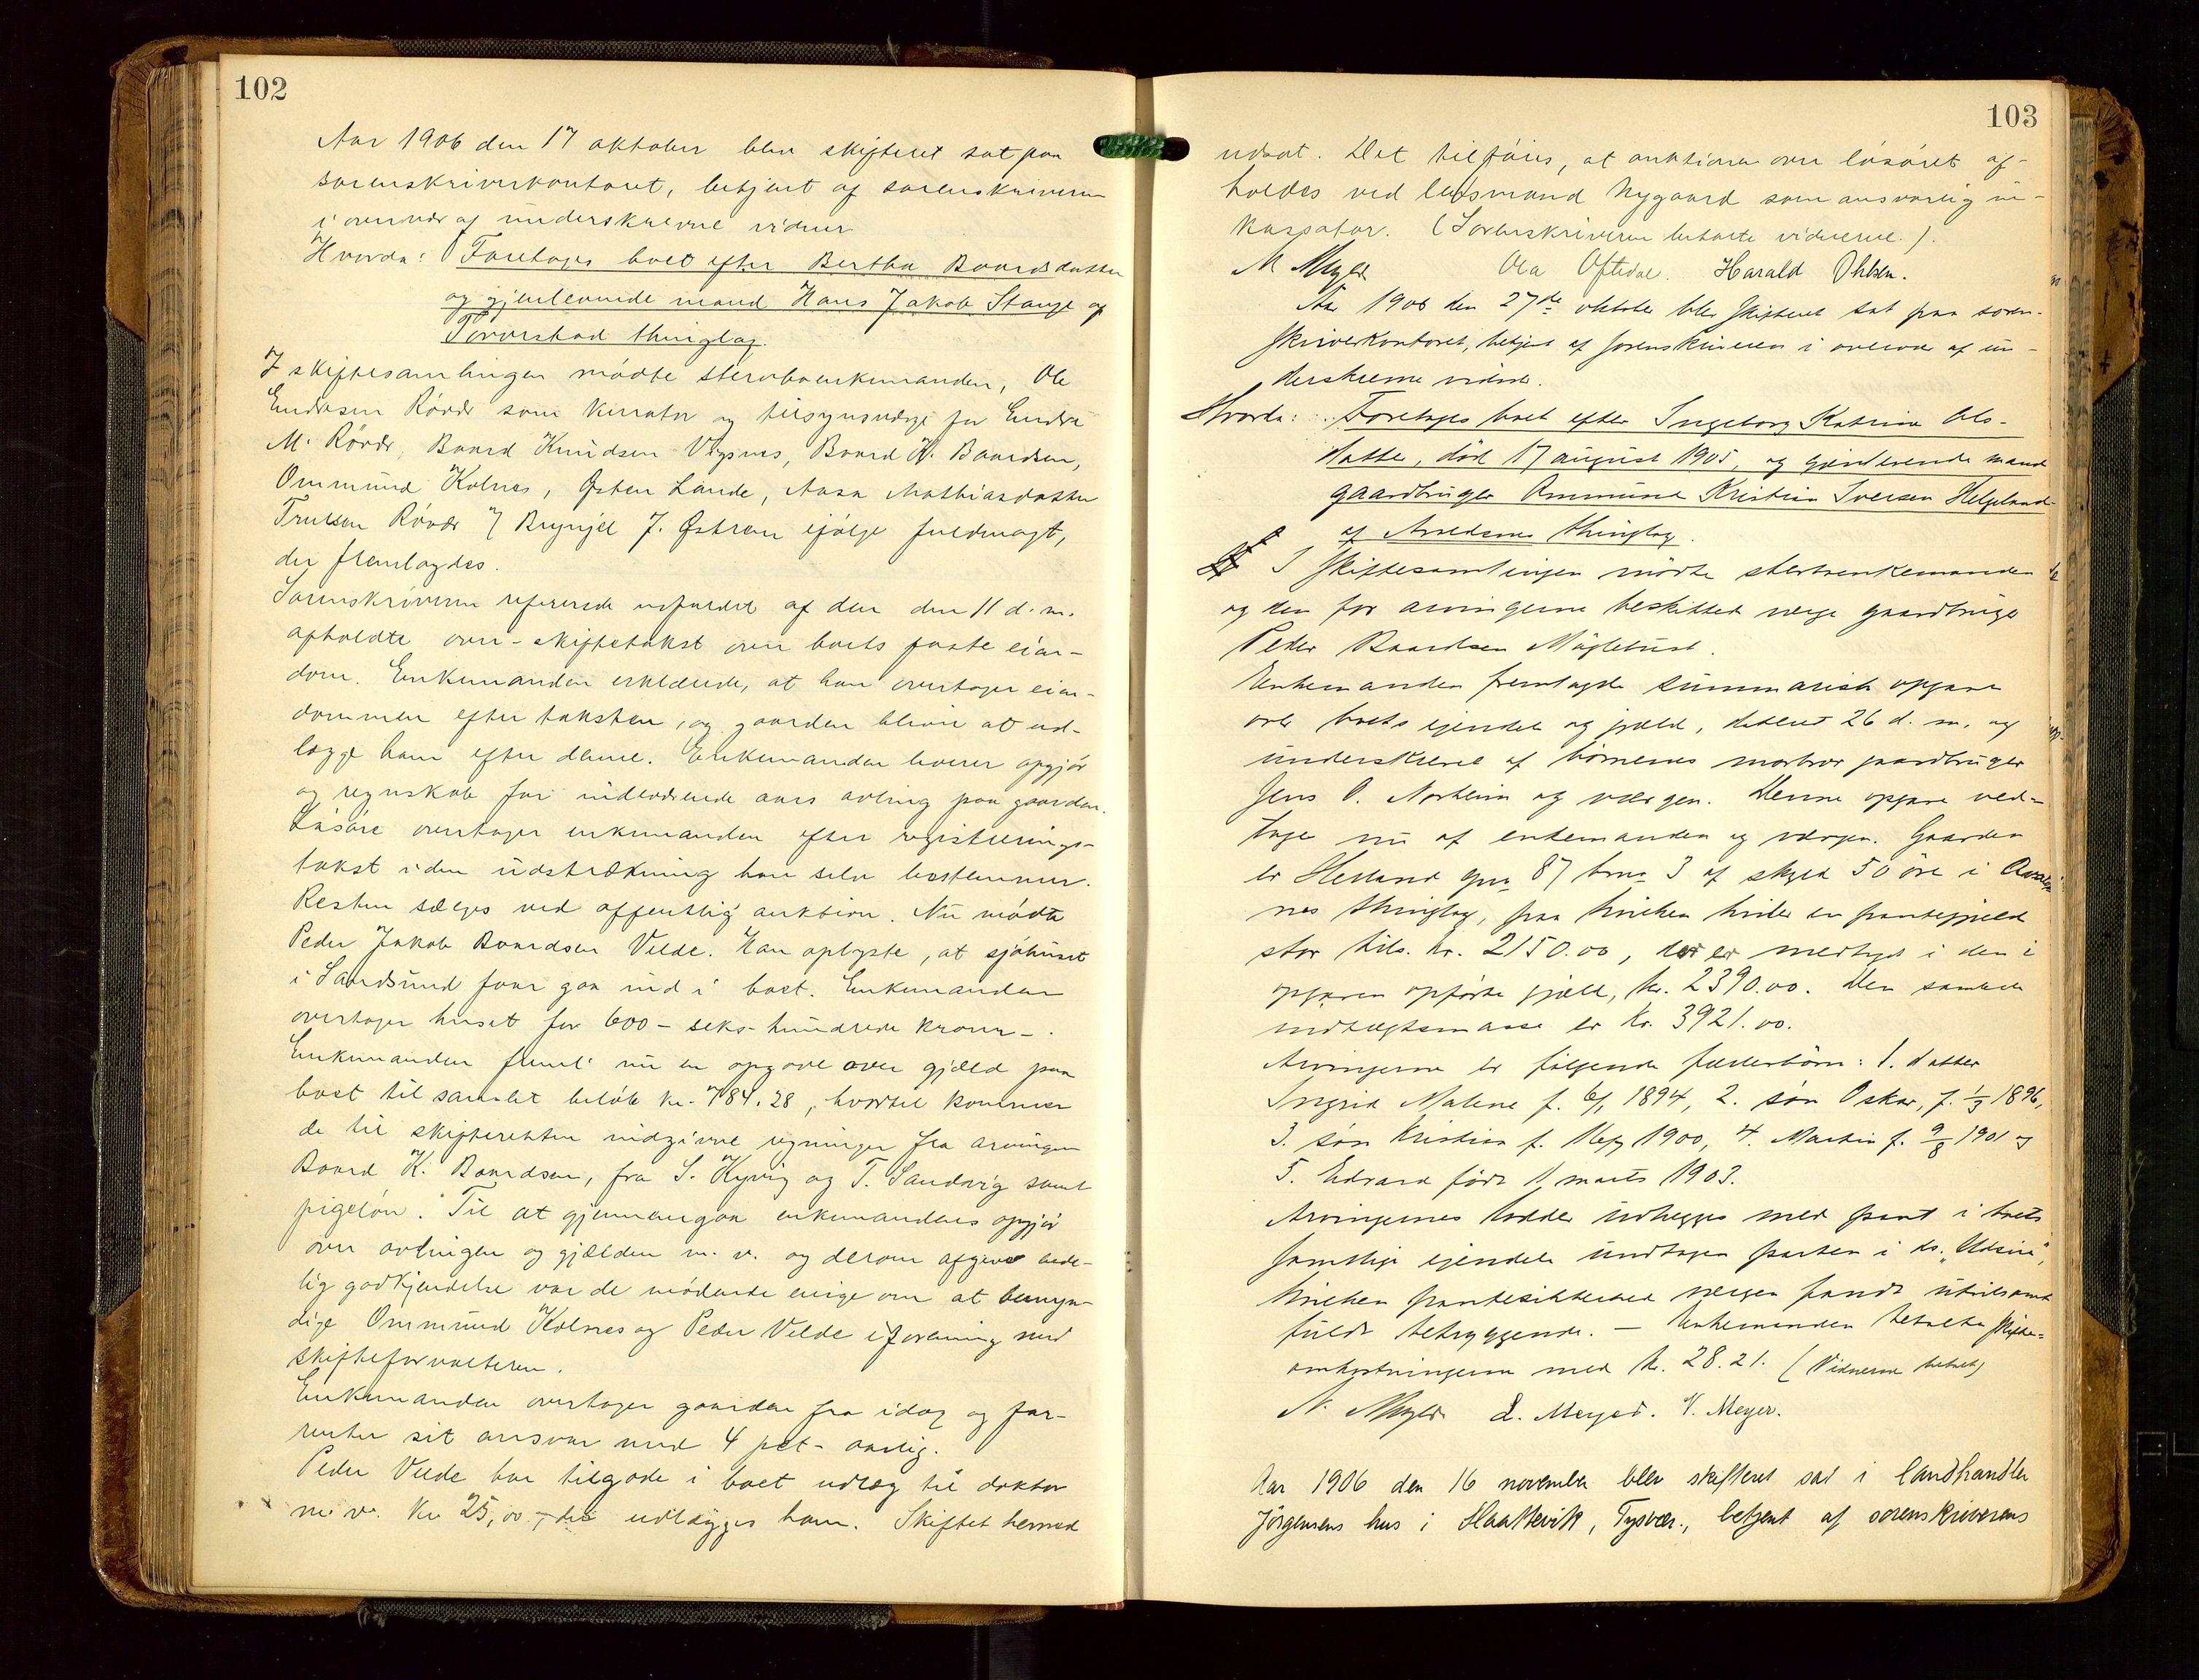 102
Aar 1906 den 17 oktober blev skifteret sat paa
sorenskriverkontoret, betjent af sorenskriveren
i overvær af underskrevne vidner
Hvorda: Foretoges boet efter Bertha Baardsdatter
og gjenlevende mand Hans Jakob Stange af
Torvestad thinglag.
I skiftesamlingen mødte stervboenkemanden, Ole
Endresen Røvær som kurator og tilsynsværge for Endre
M. Røvær, Baard Knudsen Vigsnes, Baard K. Baardsen,
Ommund Kolnes, Østen Lande, Aasa Mathiasdatter
Trulsen Røvær v/ Brynjel J. Østrem ifølge fuldmagt,
der fremlagdes.
Sorenskriveren refererede udfaldet af den den 11 d.m.
afholdte over-skiftetakst over boets faste eien-
dom. Enkemanden erklærede, at han overtager eien-
dommen efter taksten, og gaarden bliver at ud-
lægge ham efter denne. Enkemanden leverer opgjør
og regnskab for indeværende aars avling paa gaarden.
Løsøre overtager enkemanden efter registrerings-
takst i den udstrækning han selv bestemmer.
Resten sælges ved offentlig auktion. Nu mødte
Peder Jakob Baardsen Velde. Han oplyste, at sjøhuset
i Sandsund faar gaa ind i boet. Enkemanden
overtager huset for 600 - seks-hundrede kroner -.
Enkemanden freml. nu en opgave over gjæld paa
boet til samlet beløb kr. 784.28, hvortil kommer
de til skifteretten indgivne regninger fra arvingen
Baard K. Baardsen, fra S. Kyvig og T. Sandvig samt
pigeløn. Til at gjennemgaa enkemandens opgjør
over avlingen og gjælden m. v. og derom afgive ende-
lig godkjendelse var de mødende enige om at bemyn-
dige Ommund Kolnes og Peder Velde i forening med
skifteforvalteren.
Enkemanden overtager gaarden fra idag og for-
renter sit ansvar med 4 pct. aarlig.
Peder Velde har tilgode i boet udlæg til doktor
m. v. kr 25,00, der udlægges ham. Skiftet hermed
103
udsat. Det tilføies, at auktionen over løsøret af-
holdes ved lensmand Nygaard som ansvarlig in-
kassator. (Sorenskriveren betalte vidnerne.).
M Meyer Ola Oftedal. Harald Ohlsen.
Aar 1906 den 27de oktober blev skifteret sat paa soren-
skriverkontoret, betjent af sorenskriveren i overvær af un-
derskrevne vidner.
Hvorda: Foretoges boet efter Ingeborg Katrine Ols-
datter, død 17 august 1905, og gjenlevende mand
gaardbruger Ommund Kristian Iversen Helgeland
af Avaldsnes thinglag.
I skiftesamlingen mødte stervboenkemanden
og den for arvingerne beskikket værge gaardbruger
Peder Baardsen Møgletust.
Enkemanden fremlagde summarisk opgave
over boets eiendele og gjæld, dateret 26 d. m. og
underskrevet af børnenes morbror gaardbruger
Jens O. Northeim og værgen. Denne opgave ved-
toges nu af enkemanden og værgen. Gaarden
er Hesland gno 87 brno 3 af skyld 50 øre i Avalds-
nes thinglag, paa hvilken hviler en pantegjæld
stor tils. kr. 2150.00, der er medtaget i den i
opgaven opførte gjæld, kr. 2390.00. Den samlede
indtægtsmasse er kr. 3921.00.
Arvingerne er følgende fællesbørn: 1. datter
Ingrid Malene f. 6/1 1894, 2. søn Oskar, f. 1/3 1896,
3. søn Kristian f. 1900, 4. Martin f. 9/8 1901 og
5. Edvard født 1 marts 1903.
Arvingernes lodder udlægges med pant i boets
samtlige eiendele undtagen parten i ds. "Utsire",
hvilken pantesikkerhed værgen fandt
fuldt betryggende. – Enkemanden betalte skifte-
omkostningerne med kr. 28.21. (Vidnerne betalt)
M. Meyer L. Meyer. V. Meyer.
Aar 1906 den 16 november blev skifteret sat i landhandler
Jørgensens hus i Haattevik, Tysvær., betjent af sorenskriverens